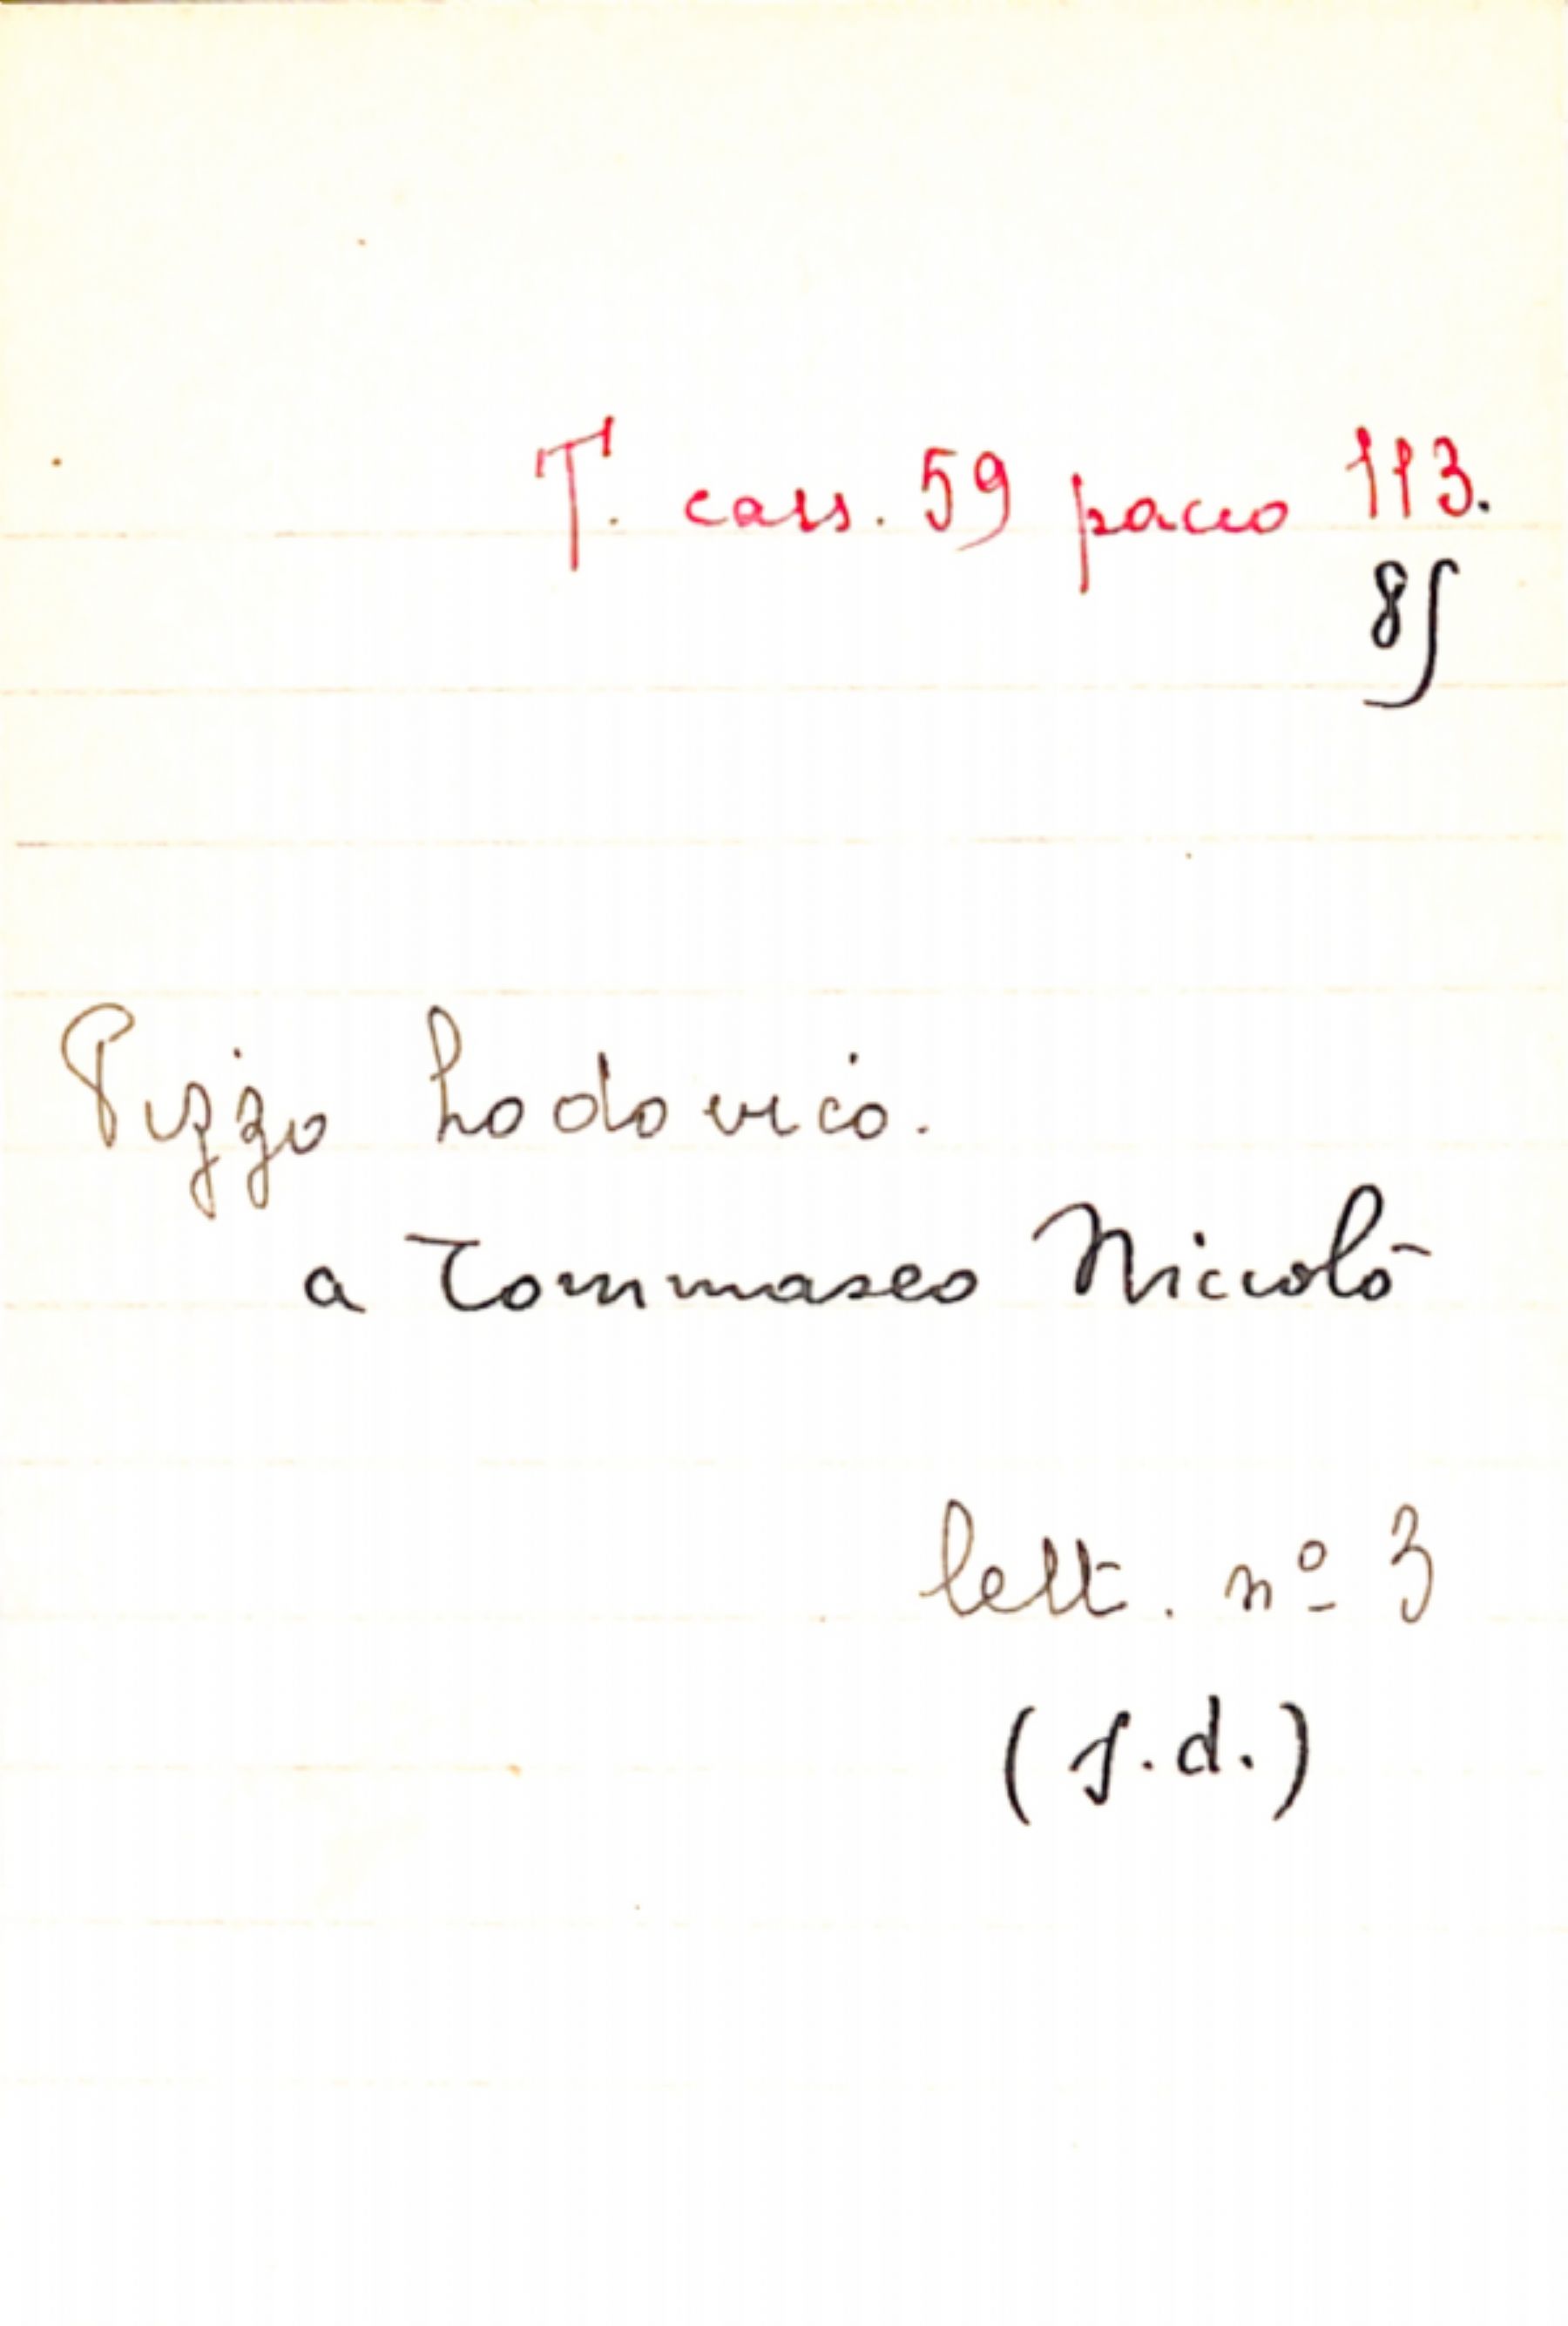 T. cass. 59 pacco 113.
85
Pizzo Lodovico.
a Tommaseo Niccolò
lett. nº 3
(s.d.)